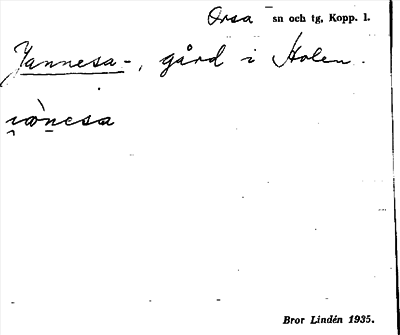 Orsa sn och tg, Kopp. l.
Jannesa-, gård i Holen.
Bror Lindén 1935.